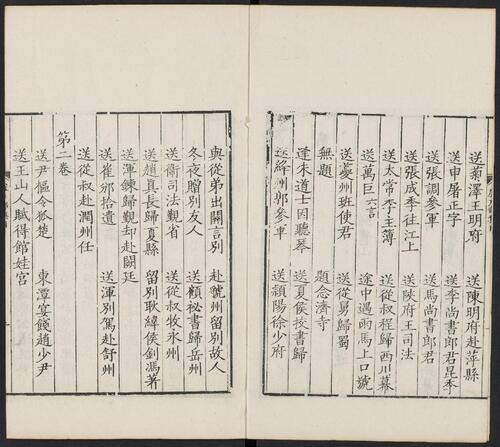 送菊澤王明府　送陳明府赴萍縣
送申屠正字　送李尚書郎君昆季
送張調參軍　送馬尚書郎君
送張成季往江上　送陝府王司法
送太常李主簿　送從叔程歸西川幕
送萬巨六言　途中遇雨馬上口號
送夔州班使君　送從舅歸蜀
無題　題念濟寺
逢朱道士因聽琴　送夏侯挍書歸
送絳州郭參軍　送潁陽徐少府
與從弟出關言別　赴虢州留別故人
冬夜贈別友人　送顧秘書歸岳州
送衛司法覲省　送從叔牧永州
送趙真長歸夏縣　留別耿緯侯釗馮著
送渾鍊歸覲却赴闕廷
送崔邠拾遺　送渾別駕赴舒州
送從叔赴潤州任
第二卷
送尹樞令狐楚　東潭宴餞趙少尹
送王山人賦得館娃宮